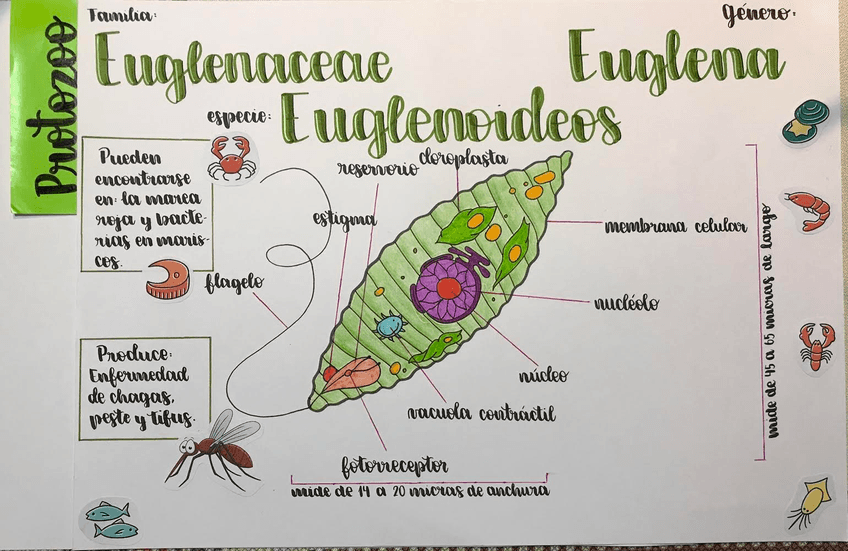 Protozoo
Familia:
Euglenaceae
Género:
Euglena
especie: Euglenoideos
Pueden
encontrarse
en: la marea
roja y bacte-
rias en maris-
cos.
reservorio
cloroplasta
estigma
membrana celular
flagelo
nucléolo
Produce:
Enfermedad
de chagas,
peste y tifus.
núcleo
vacuola contráctil
fotorreceptor
mide de 14 a 20 micras de anchura
mide de 45 a 65 micras de largo